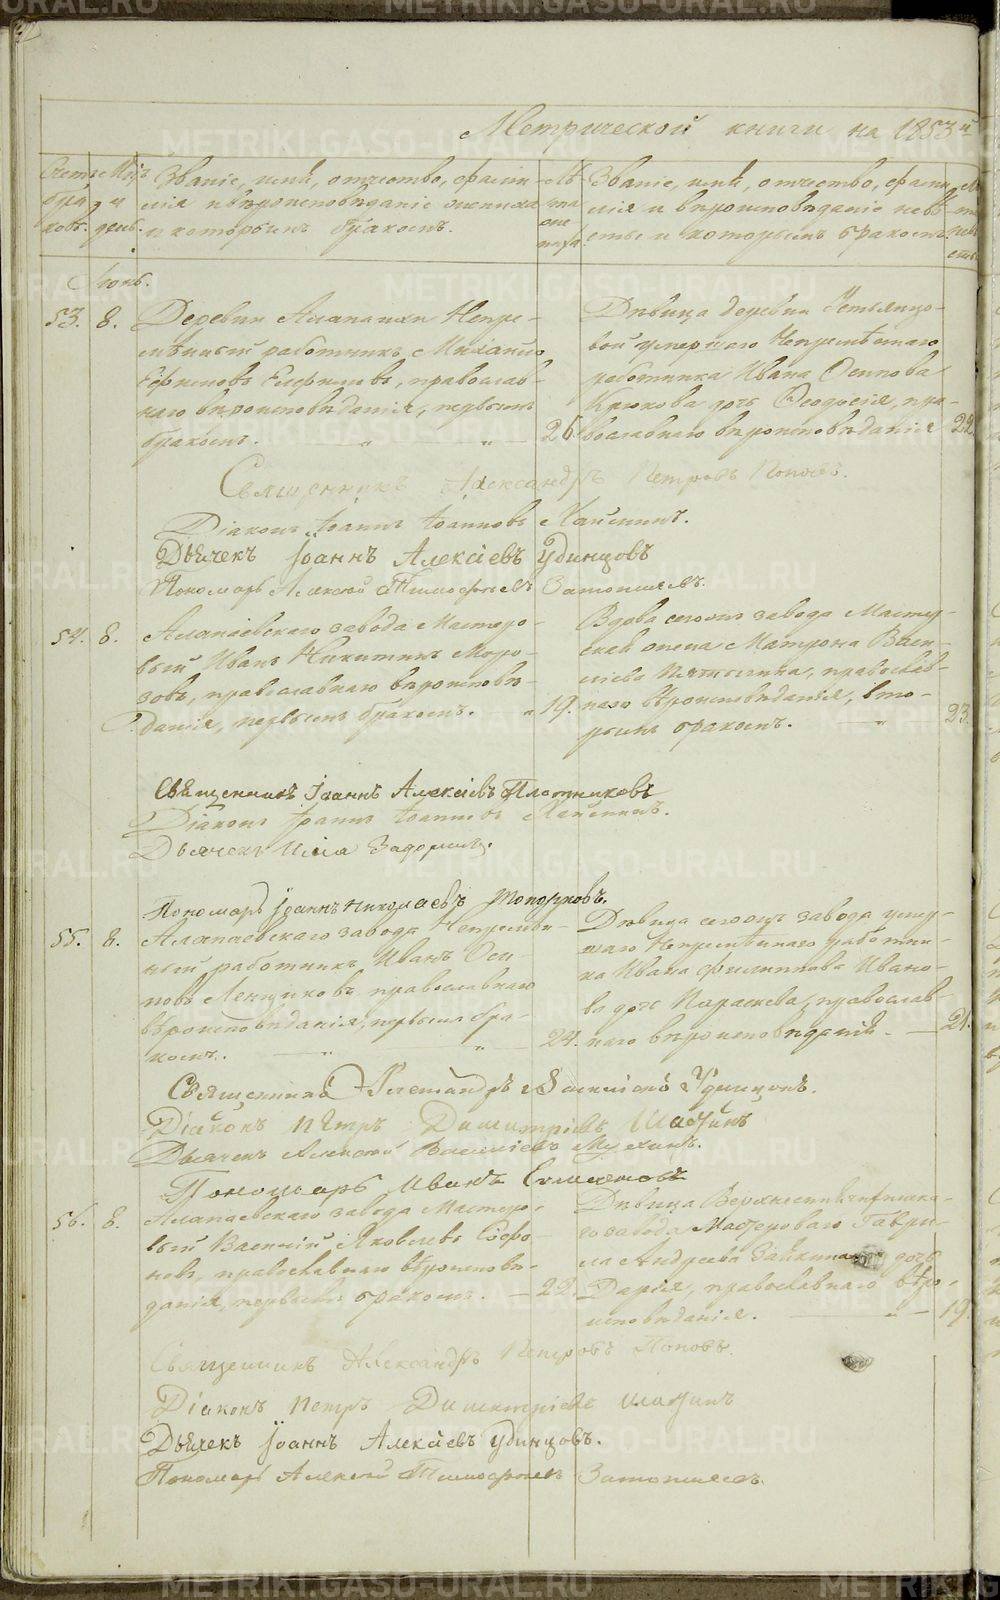 Метрической книги на 1853 й
Счетъ бра ковъ. Мѣц. и день.
Званіе, имя, отчество, фами
лія и вѣроисповѣданіе жениха
и которымъ бракомъ.
Лѣ та же ниха.
Званіе, имя, отчество, фами
лія и вѣроисповѣданіе невѣ
сты и которымъ бракомъ.
Юнь.
53. 8. Деревни Алапаихи Непре-
мѣнный работникъ Михаило
Ефимовъ православ-
наго вѣроисповѣданія, первымъ
бракомъ. 26.
Дѣвица деревни
вой умершаго Непремѣннаго
работника Ивана Осипова
Крюкова дочь Ѳеодосія, пра-
вославнаго вѣроисповѣданія 22.
Священникъ Александръ Петровъ Поповъ.
Діаконъ Іоаннъ Іоанновъ
Дьячекъ Іоаннъ Алексіевъ Удинцовъ
Пономарь Алексій Тимофѣевъ
54. 8. Алапаевскаго завода Мастеро-
вый Иванъ Никитинъ Моро-
зовъ, православнаго вѣроисповѣ-
данія, первымъ бракомъ. 19.
Вдова сегожъ завода Масте-
жена Матрона Васи-
ліева православ-
наго вѣроисповѣданія, вто-
рымъ бракомъ. 23.
Священникъ Іоаннъ Алексіевъ Плотниковъ
Діаконъ Іоаннъ Іоанновъ
Дьячекъ Илія Задоринъ.
Пономарь Іоаннъ Николаевъ Топорковъ.
55. 8. Алапаевскаго завода Непремѣн-
ный работникъ Иванъ Оси-
повъ православнаго
вѣроисповѣданія, первымъ бра-
комъ. 24.
Дѣвица сегожъ завода умер-
шаго Непремѣннаго работни-
ка Ивана Филиппова Ивано-
ва дочь Параскева, православ-
наго вѣроисповѣданія. 21.
Священникъ Александръ Удинцовъ.
Діаконъ Петръ Димитріевъ
Дьячекъ Алексій Василіевъ Мухинъ.
Пономарь Иванъ
56. 8. Алапаевскаго завода Мастеро-
вый Василій Яковлевъ Софо-
новъ, православнаго вѣроисповѣ-
данія, первымъ бракомъ. 22.
Дѣвица
го завода Мастероваго Гаври-
ла Андреева Зайкина дочь
Дарія, православнаго вѣро-
исповѣданія. 19.
Священникъ Александръ Петровъ Поповъ.
Діаконъ Петръ Димитріевъ
Дьячекъ Іоаннъ Алексіевъ Удинцовъ.
Пономарь Алексій Тимофѣевъ
METRIKI.GASO-URAL.RU